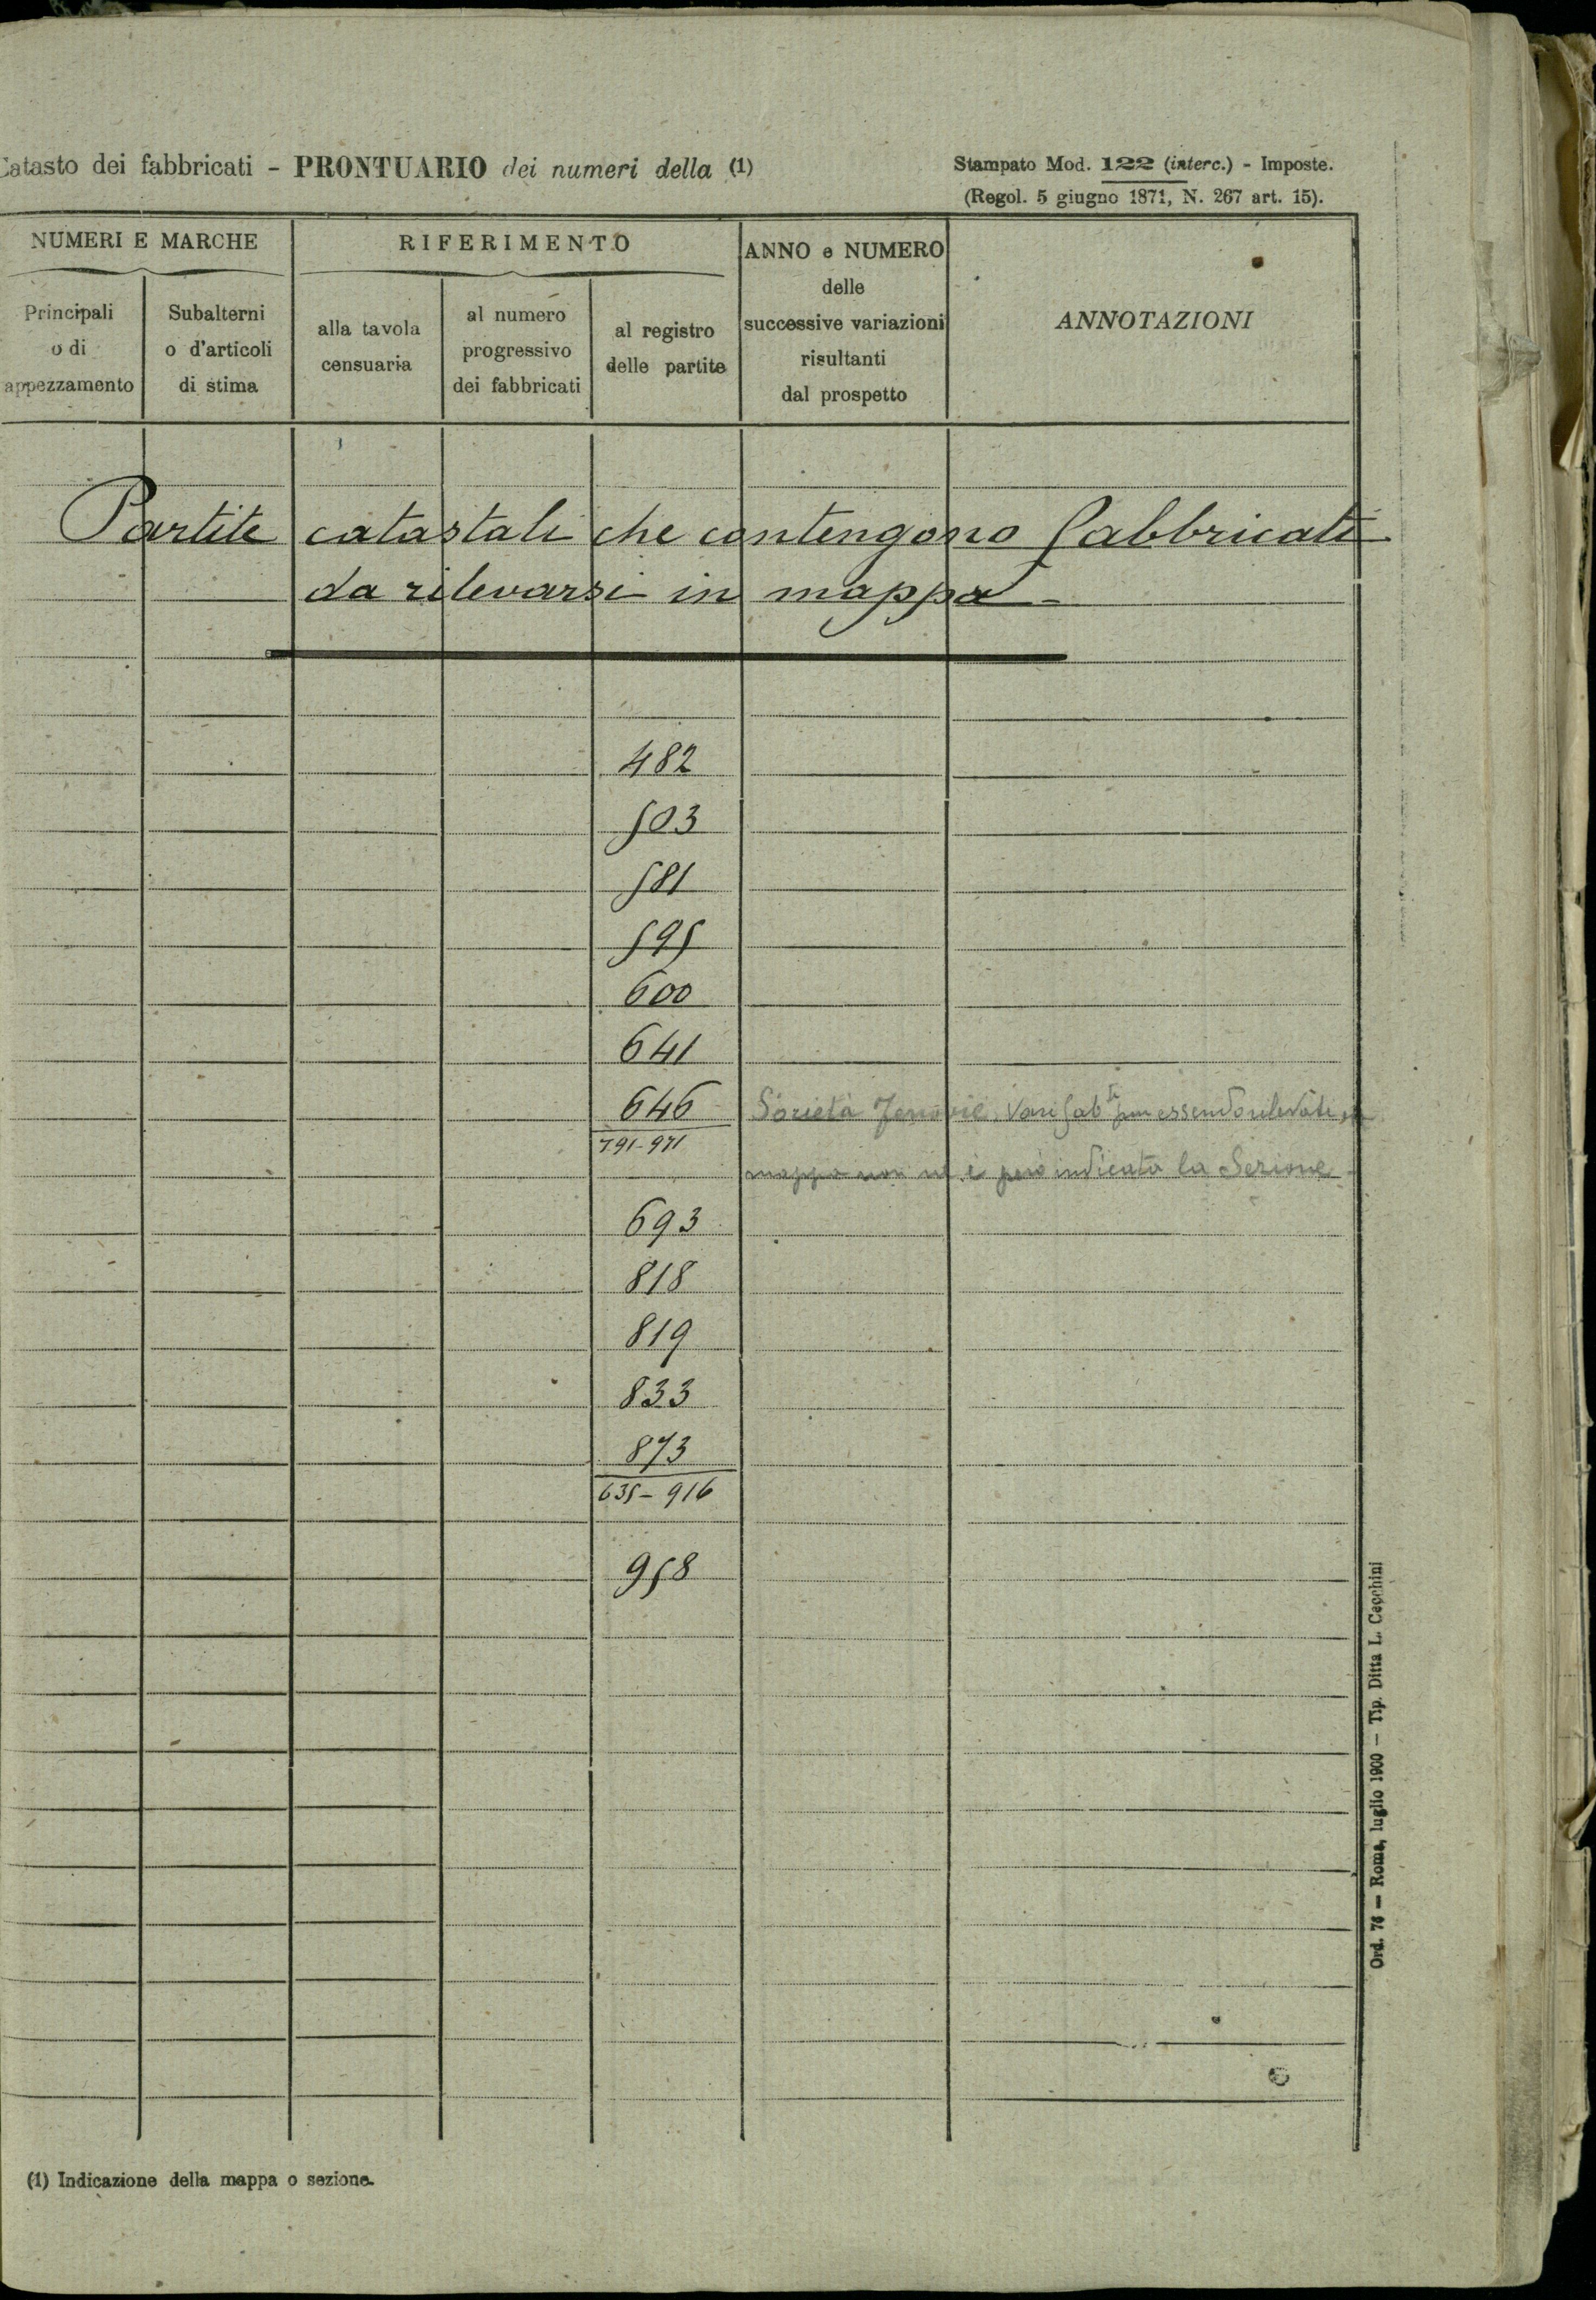 Catasto dei fabbricati - PRONTUARIO dei numeri della (1)
Stampato Mod. 122 (interc.) - Imposte.
(Regol. 5 giugno 1871, N. 267 art. 15).
NUMERI E MARCHE
RIFERIMENTO
ANNO e NUMERO
delle
successive variazioni
risultanti
dal prospetto
ANNOTAZIONI
Principali
o di
appezzamento
Subalterni
o d'articoli
di stima
alla tavola
censuaria
al numero
progressivo
dei fabbricati
al registro
delle partite
Partite catastali che contengono fabbricati
da rilevarsi in mappa -
482
503
581
595
600
641
646 Società Ferrovie. Vari fab.ti pur essendo rilevati in
791-971
mappa non ne è però indicata la Sezione -
693
818
819
833
873
635 - 916
958
Ord. 76 — Roma, luglio 1900 — Tip. Ditta L. Cecchini
(1) Indicazione della mappa o sezione.